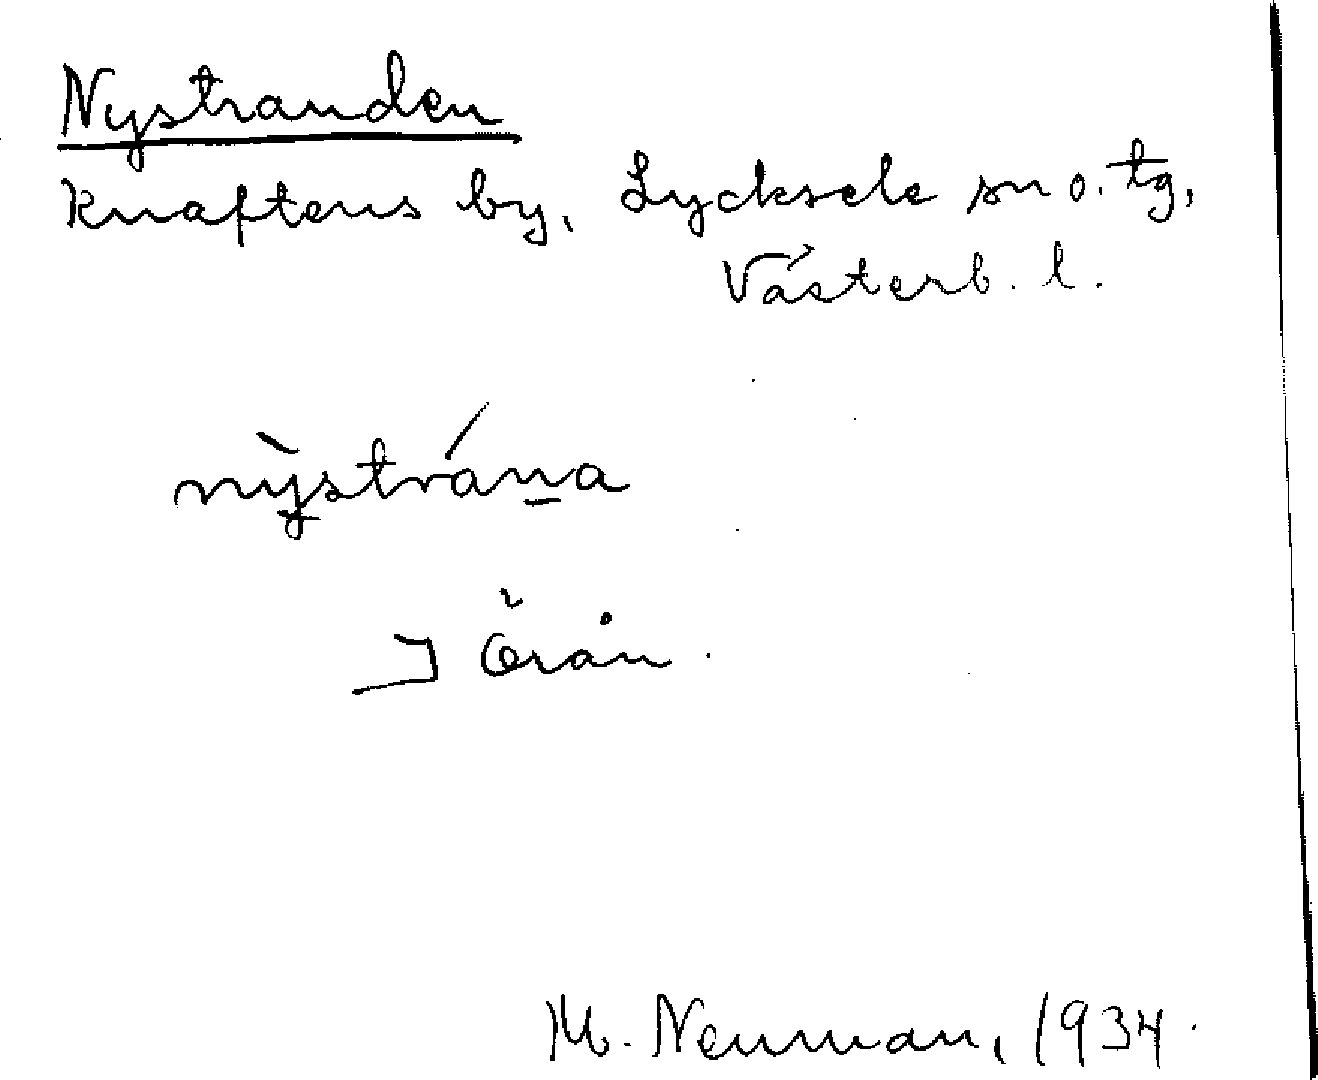 Nystranden
Knaftens by, Lycksele sn o. tg,
Västerb. l.
nỳstrána
I Örån.
M. Neuman, 1934.